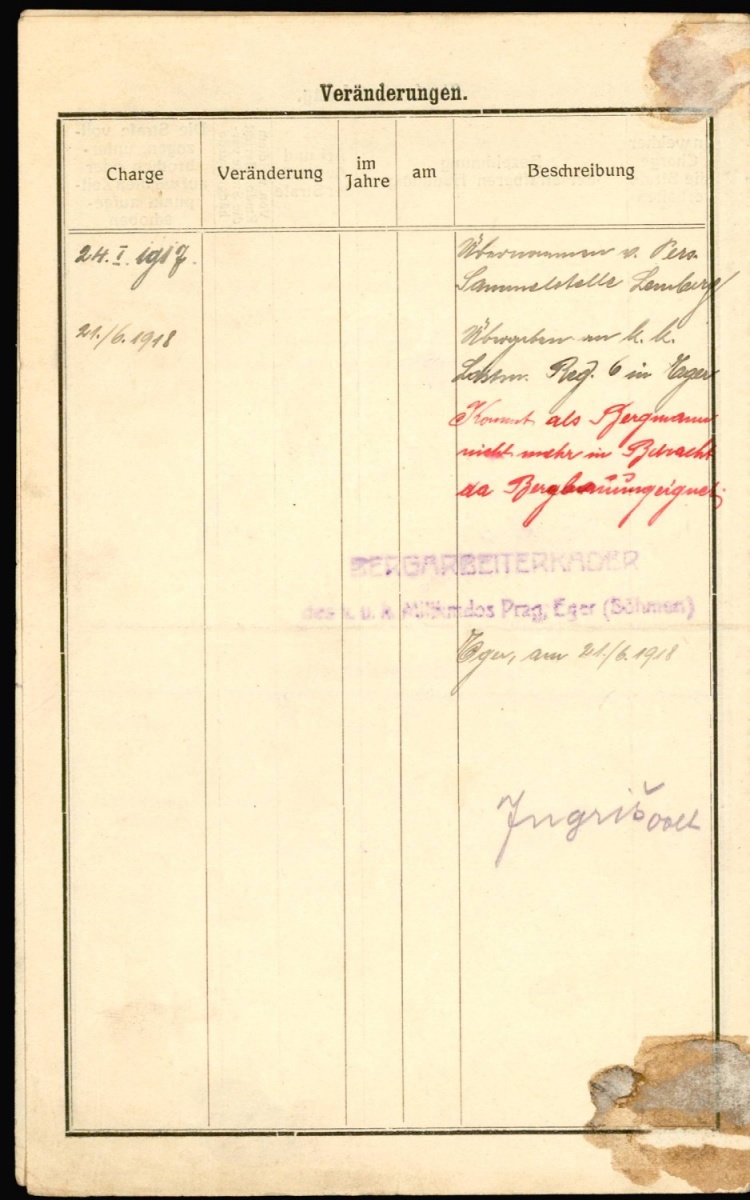 Veränderungen.
Charge Veränderung im Jahre am Beschreibung
24. I. 1917. Übernommen v. Pers.
Sammelstelle Lemberg
21./6.1918 Übergeben an k. k.
Reg. 6 in Eger
Kommt als Bergmann
nicht mehr in Betracht
da Bergbauungeignet.
BERGARBEITERKADER
des k. u. k. Milkmdos Prag, Eger (Böhmen)
Eger, am 21./6.1918
Ingriš